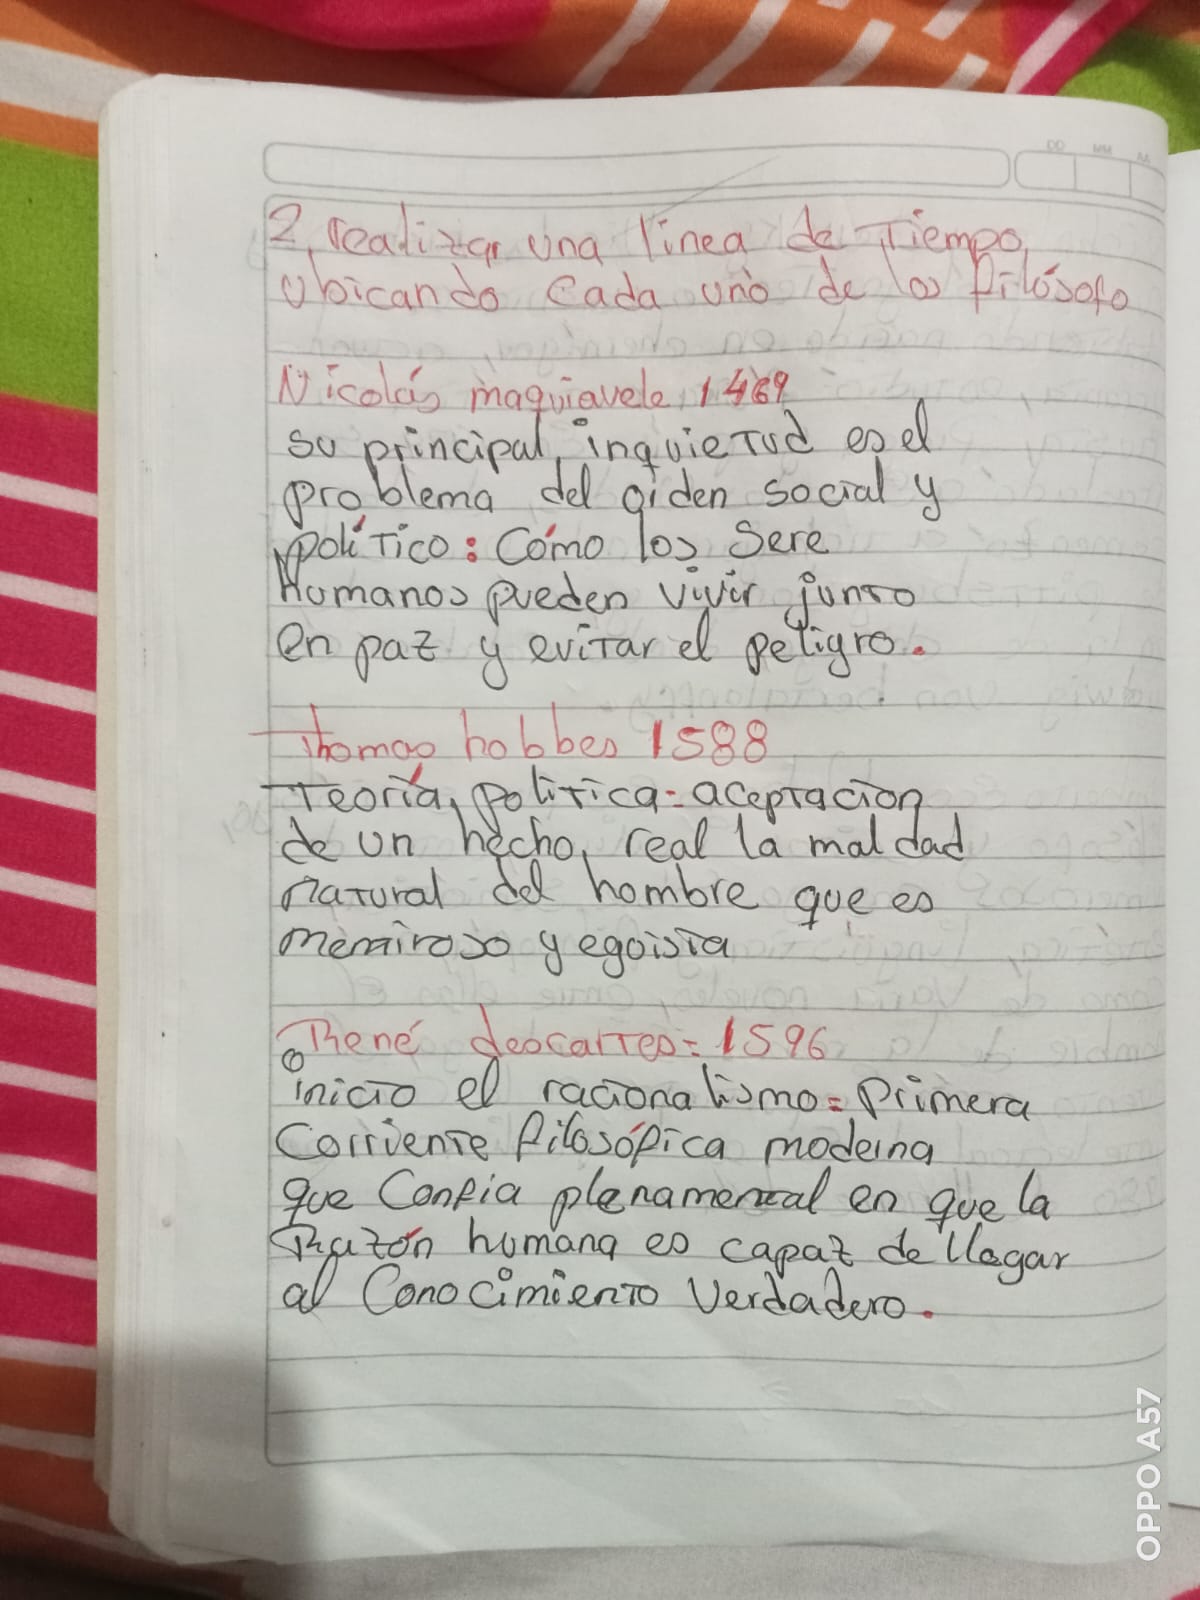 DD MM AA
2, realizar una línea de Tiempo,
ubicando cada uno de los filósofo
Nicolás maquiavele, 1469
su principal, inquietud es el
problema del orden social y
político: Cómo los Sere
Humanos pueden vivir junto
en paz y evitar el peligro.
Thomas hobbes 1588
Teoría, política = aceptacion
de un hecho, real la maldad
natural del hombre que es
mentiroso y egoista
René descartes = 1596
inicio el racionalismo = Primera
Corriente filosófica moderna
que Confia plenamental en que la
Razón humana es capaz de llegar
al Conocimiento Verdadero.
OPPO A57